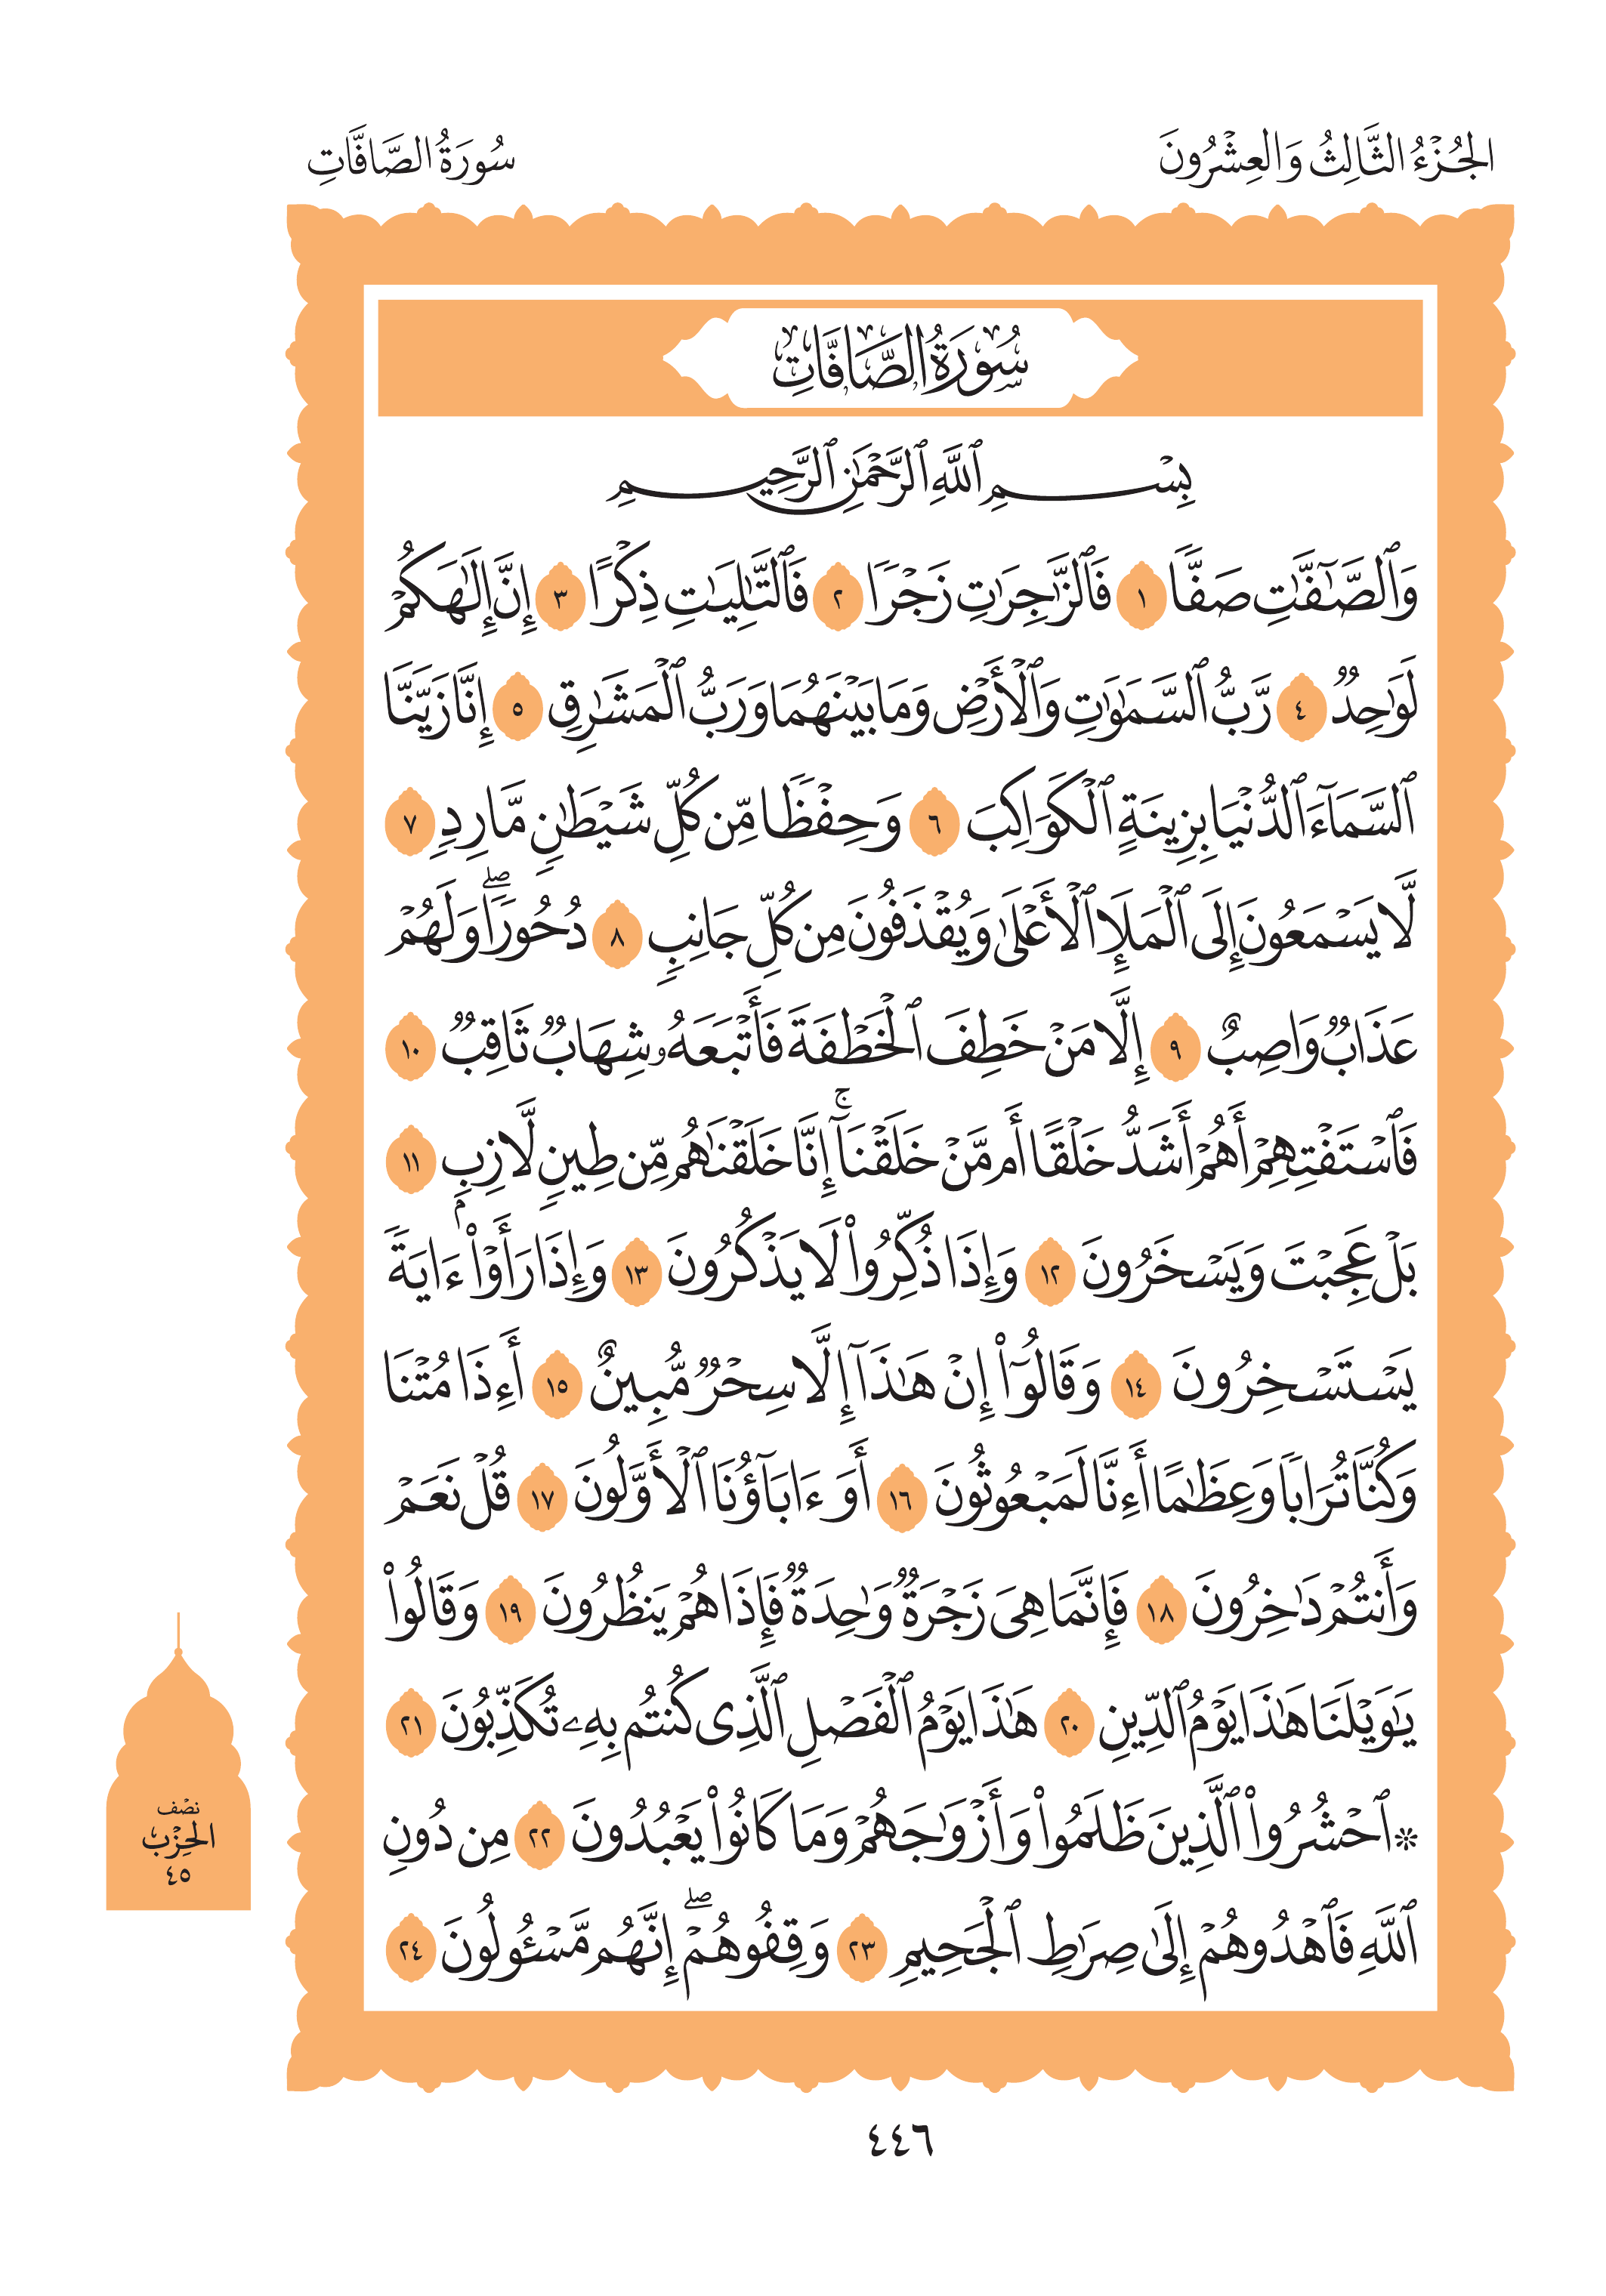 الجُزْءُ الثَّالِثُ وَالعِشْرُونَ
سُورَةُ الصَّافَّاتِ
سُورَةُ الصَّافَّاتِ
بِسْمِ ٱللَّهِ ٱلرَّحْمَٰنِ ٱلرَّحِيمِ
وَٱلصَّٰٓفَّٰتِ صَفًّا ١ فَٱلزَّٰجِرَٰتِ زَجْرًا ٢ فَٱلتَّٰلِيَٰتِ ذِكْرًا ٣ إِنَّ إِلَٰهَكُمْ
لَوَٰحِدٌ ٤ رَّبُّ ٱلسَّمَٰوَٰتِ وَٱلْأَرْضِ وَمَا بَيْنَهُمَا وَرَبُّ ٱلْمَشَٰرِقِ ٥ إِنَّا زَيَّنَّا
ٱلسَّمَآءَ ٱلدُّنْيَا بِزِينَةٍ ٱلْكَوَاكِبِ ٦ وَحِفْظًا مِّن كُلِّ شَيْطَٰنٍ مَّارِدٍ ٧
لَّا يَسَّمَّعُونَ إِلَى ٱلْمَلَإِ ٱلْأَعْلَىٰ وَيُقْذَفُونَ مِن كُلِّ جَانِبٍ ٨ دُحُورًا ۖ وَلَهُمْ
عَذَابٌ وَاصِبٌ ٩ إِلَّا مَنْ خَطِفَ ٱلْخَطْفَةَ فَأَتْبَعَهُۥ شِهَابٌ ثَاقِبٌ ١٠
فَٱسْتَفْتِهِمْ أَهُمْ أَشَدُّ خَلْقًا أَم مَّنْ خَلَقْنَآ ۚ إِنَّا خَلَقْنَٰهُم مِّن طِينٍ لَّازِبٍۭ ١١
بَلْ عَجِبْتَ وَيَسْخَرُونَ ١٢ وَإِذَا ذُكِّرُوا۟ لَا يَذْكُرُونَ ١٣ وَإِذَا رَأَوْا۟ ءَايَةً
يَسْتَسْخِرُونَ ١٤ وَقَالُوٓا۟ إِنْ هَٰذَآ إِلَّا سِحْرٌ مُّبِينٌ ١٥ أَءِذَا مُتْنَا
وَكُنَّا تُرَابًا وَعِظَٰمًا أَءِنَّا لَمَبْعُوثُونَ ١٦ أَوَ ءَابَآؤُنَا ٱلْأَوَّلُونَ ١٧ قُلْ نَعَمْ
وَأَنتُمْ دَٰخِرُونَ ١٨ فَإِنَّمَا هِىَ زَجْرَةٌ وَٰحِدَةٌ فَإِذَا هُمْ يَنظُرُونَ ١٩ وَقَالُوا۟
يَٰوَيْلَنَا هَٰذَا يَوْمُ ٱلدِّينِ ٢٠ هَٰذَا يَوْمُ ٱلْفَصْلِ ٱلَّذِى كُنتُم بِهِۦ تُكَذِّبُونَ ٢١
۞ ٱحْشُرُوا۟ ٱلَّذِينَ ظَلَمُوا۟ وَأَزْوَٰجَهُمْ وَمَا كَانُوا۟ يَعْبُدُونَ ٢٢ مِن دُونِ
ٱللَّهِ فَٱهْدُوهُمْ إِلَىٰ صِرَٰطِ ٱلْجَحِيمِ ٢٣ وَقِفُوهُمْ ۖ إِنَّهُم مَّسْـُٔولُونَ ٢٤
نصْف
الحِزْب
٤٥
٤٤٦